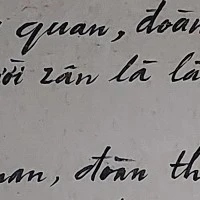 quan, đoàn
zân là
quan, đoàn th